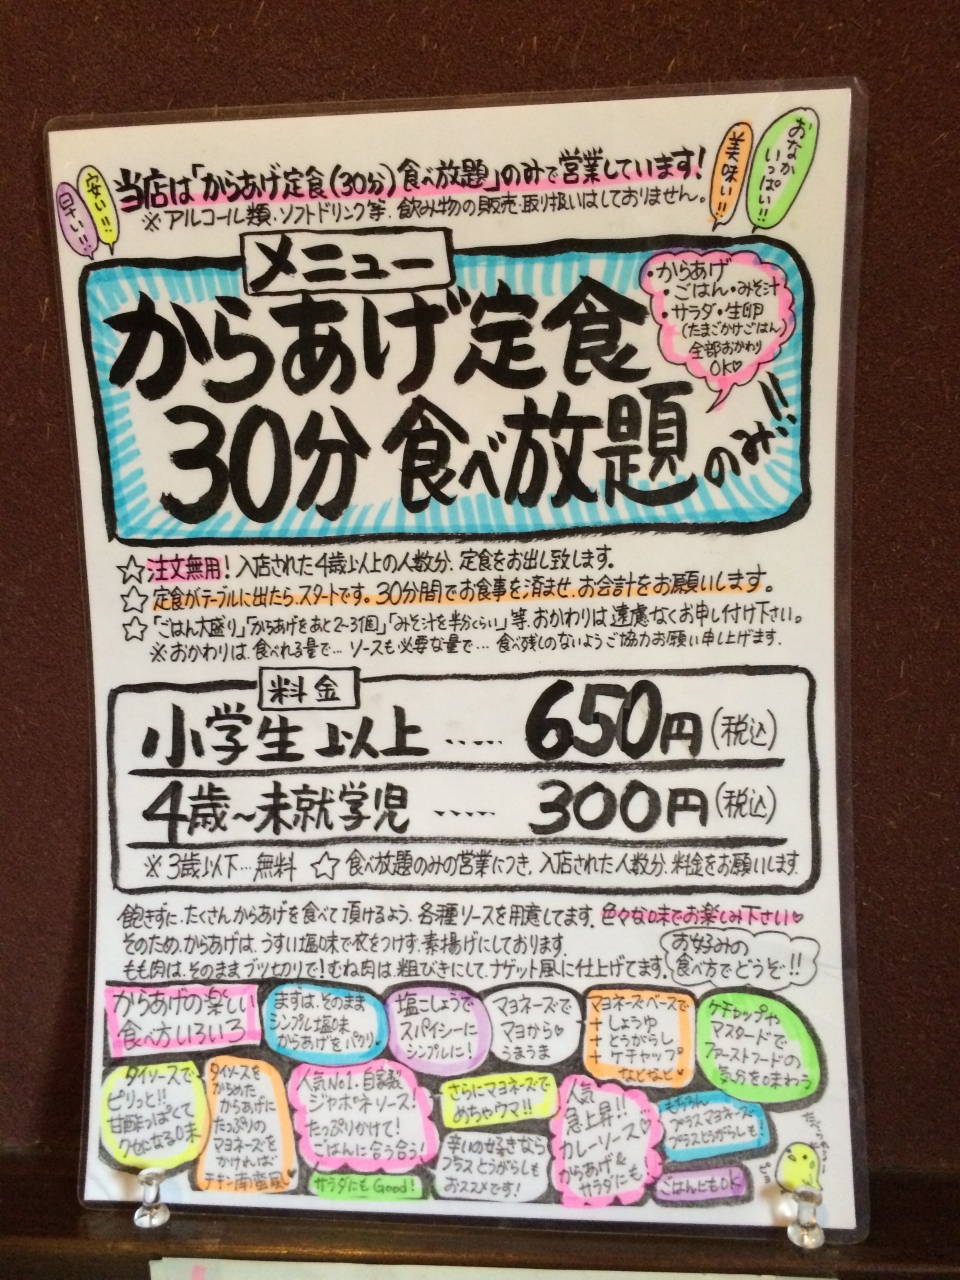 早い!!
安い!!
当店は「からあげ定食(30分)食べ放題」のみで営業しています!
※アルコール類・ソフトドリンク等、飲み物の販売・取り扱いはしておりません。
美味い!!
おなか
いっぱい!!
メニュー
からあげ定食
30分 食べ放題のみ!!
・からあげ
・ごはん・みそ汁
・サラダ・生卵
(たまごかけごはん)
全部おかわり
OK♡
☆注文無用!入店された4歳以上の人数分、定食をお出し致します。
☆定食がテーブルに出たら、スタートです。30分間でお食事を済ませ、お会計をお願いします。
☆「ごはん大盛り」「からあげをあと2~3個」「みそ汁を半分くらい」等、おかわりは遠慮なくお申し付け下さい。
※おかわりは、食べれる量で… ソースも必要な量で… 食べ残しのないようご協力お願い申し上げます。
料金
小学生以上……650円(税込)
4歳~未就学児……300円(税込)
※3歳以下…無料 ☆食べ放題のみの営業につき、入店された人数分、料金をお願いします。
飽きずに、たくさんからあげを食べて頂けるよう、各種ソースを用意してます。色々な味でお楽しみ下さい♥
そのため、からあげは、うすい塩味で衣をつけず、素揚げにしております。
もも肉は、そのままブツ切りで!むね肉は、粗びきにして、ナゲット風に仕上げてます。
お好みの
食べ方でどうぞ!!
からあげの楽しい
食べ方いろいろ
まずは、そのまま
シンプル塩味
からあげをパクリ
塩こしょうで
スパイシーに
シンプルに!
マヨネーズで
マヨから♥
うまうま
マヨネーズベースで
+しょうゆ
+とうがらし
+ケチャップ
などなど♥
ケチャップや
マスタードで
ファーストフードの
気分を味わう
タイソースで
ピリッと!!
甘酢っぱくて
クセになる味
タイソースを
からめた
からあげに
たっぷりの
マヨネーズを
かければ
チキン南蛮風♥
人気No.1.自家製
ジャポネソース!
たっぷりかけて!
ごはんに合う合う!
サラダにもGood!
さらにマヨネーズで
めちゃウマ!!
辛いの好きなら
プラスとうがらしも
おススメです!
人気
急上昇!!
カレーソース♡
からあげ&
サラダにも
もちろん
プラスマヨネーズ!
プラスとうがらしも!
ごはんにもOK